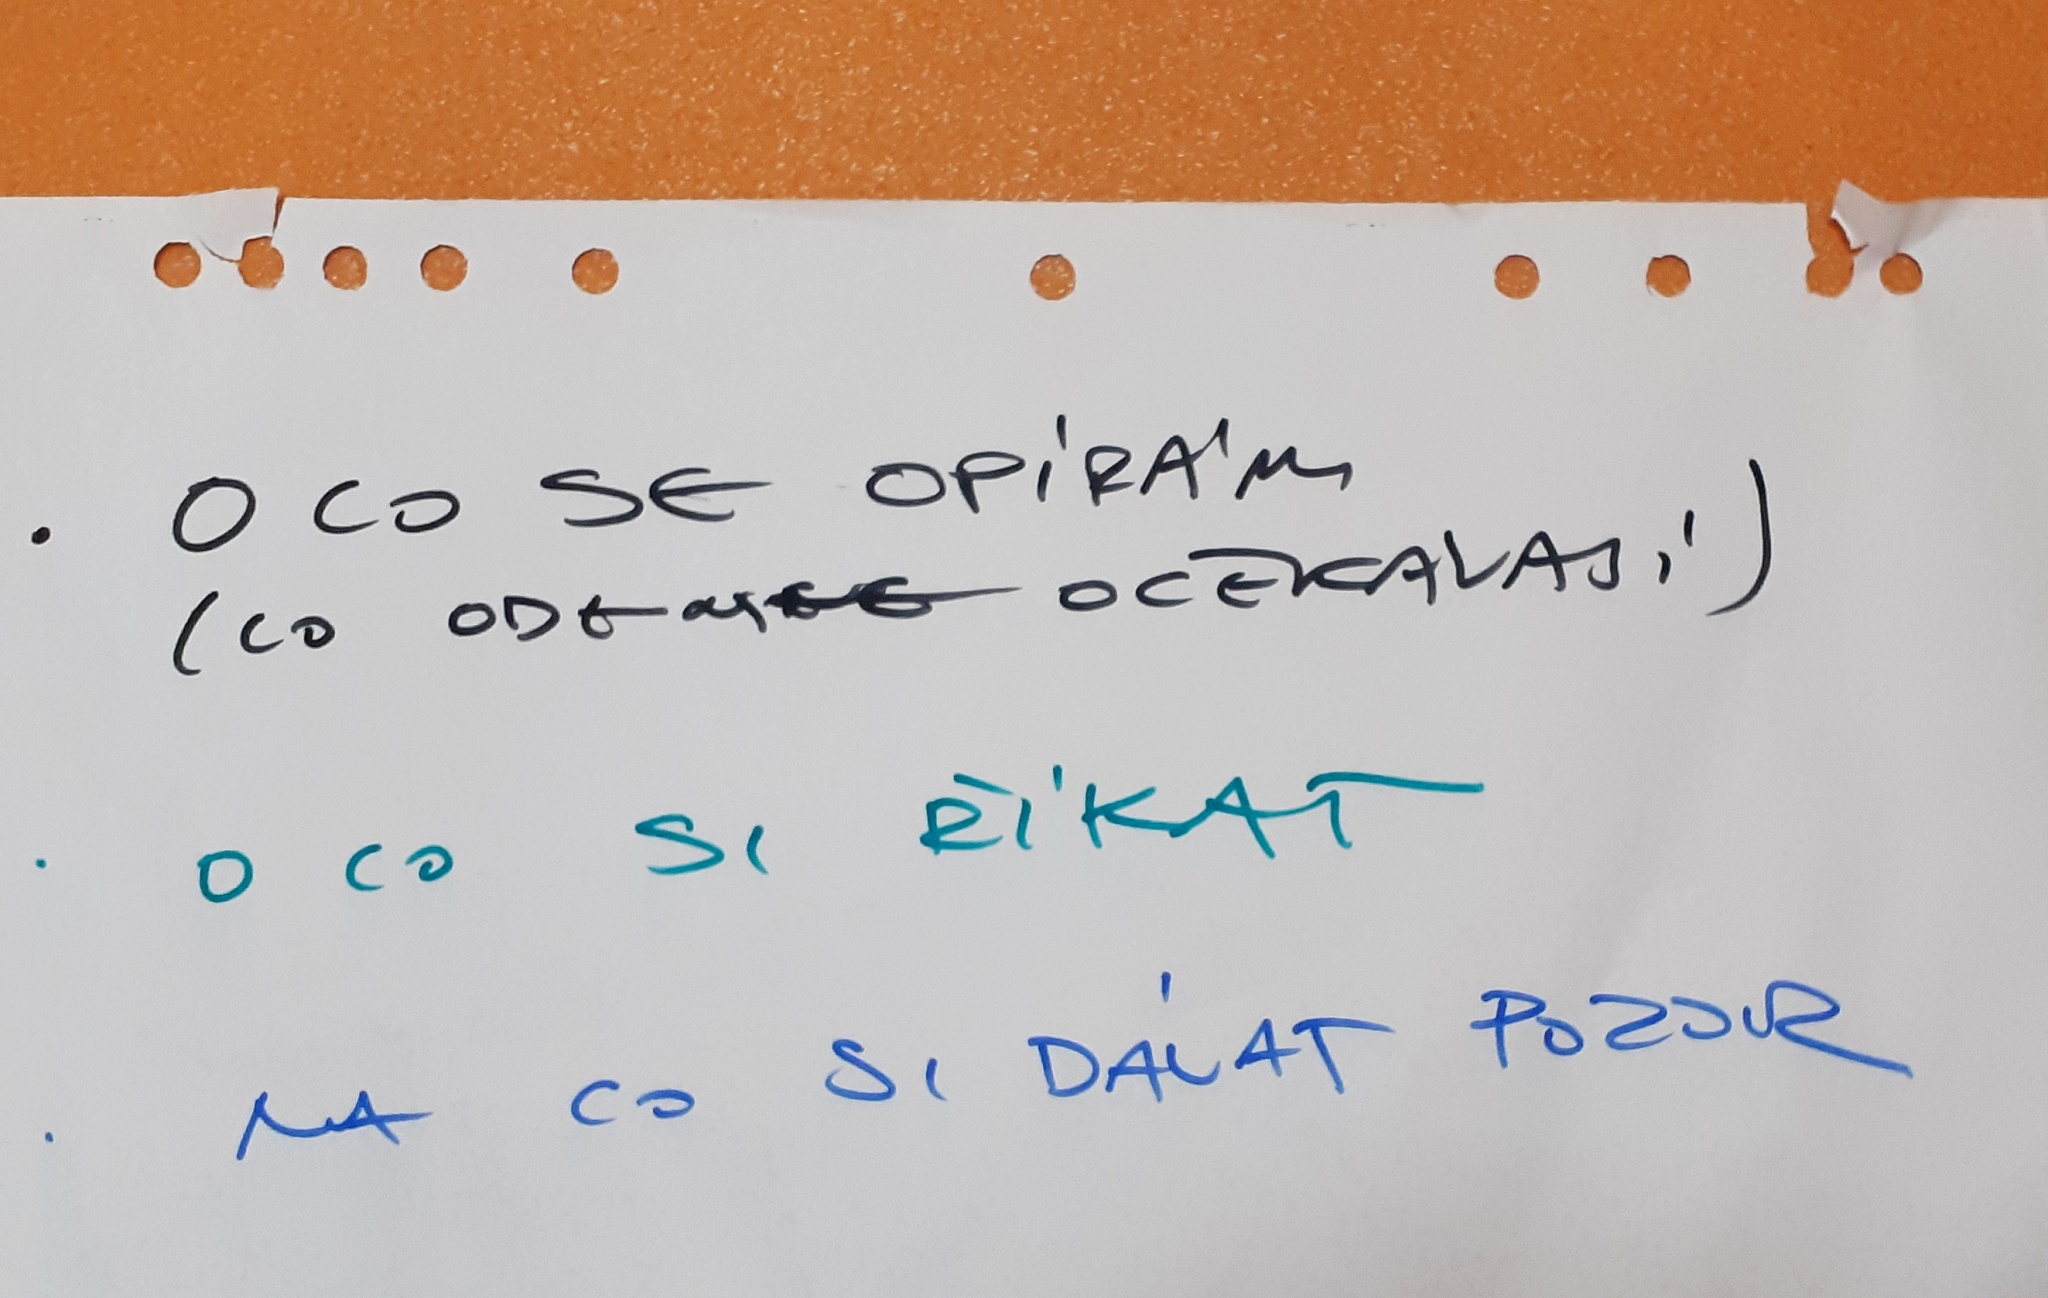 • O CO SE OPÍRÁM
(CO ODE MNE OČEKÁVAJÍ)
• O CO SI ŘÍKAT
• NA CO SI DÁVAT POZOR